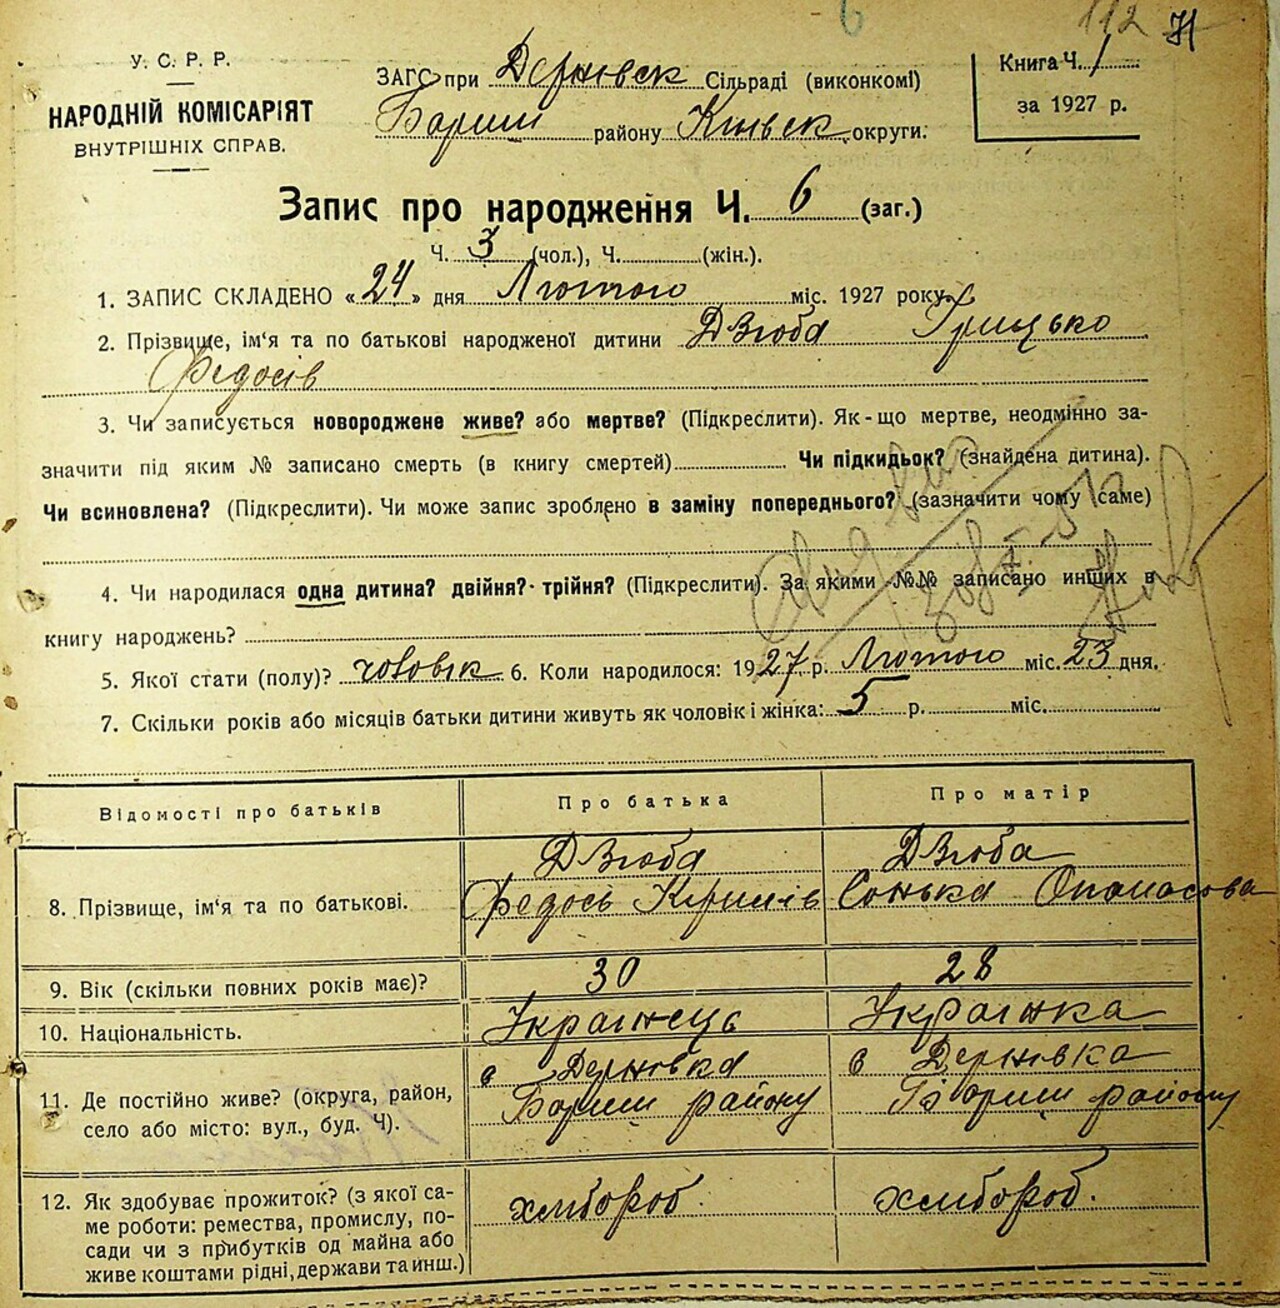 6
112
У. С. Р. Р.
НАРОДНІЙ КОМІСАРІЯТ
ВНУТРІШНІХ СПРАВ.
ЗАГС при Дернівск Сільраді (виконкомі)
Бориш району Київск округи.
Книга Ч. 1
за 1927 р.
Запис про народження Ч. 6 (заг.)
Ч. 3 (чол.), Ч. (жін.).
1. ЗАПИС СКЛАДЕНО «24» дня Лютого міс. 1927 року.
2. Прізвище, ім'я та по батькові народженої дитини Дзюба Грицько
Федосів
3. Чи записується новороджене живе? або мертве? (Підкреслити). Як-що мертве, неодмінно за-
значити під яким № записано смерть (в книгу смертей) Чи підкидьок? (знайдена дитина).
Чи всиновлена? (Підкреслити). Чи може запис зроблено в заміну попереднього? (зазначити чому саме)
4. Чи народилася одна дитина? двійня? трійня? (Підкреслити). За якими №№ записано инших в
книгу народжень?
5. Якої стати (полу)? чоловік 6. Коли народилося: 1927 р. Лютого міс. 23 дня.
7. Скільки років або місяців батьки дитини живуть як чоловік і жінка: 5 р. міс.
Відомості про батьків Про батька Про матір
Дзюба Дзюба
8. Прізвище, ім'я та по батькові. Федось Кирилів Сонька Опанасова
9. Вік (скільки повних років має)? 30 28
10. Національність. Українець Українка
с Дернівка с Дернівка
11. Де постійно живе? (округа, район, Бориш району Бориш району
село або місто: вул., буд. Ч).
12. Як здобуває прожиток? (з якої са- хлібороб хлібороб.
ме роботи: ремества, промислу, по-
сади чи з прибутків од майна або
живе коштами рідні, держави та инш.)